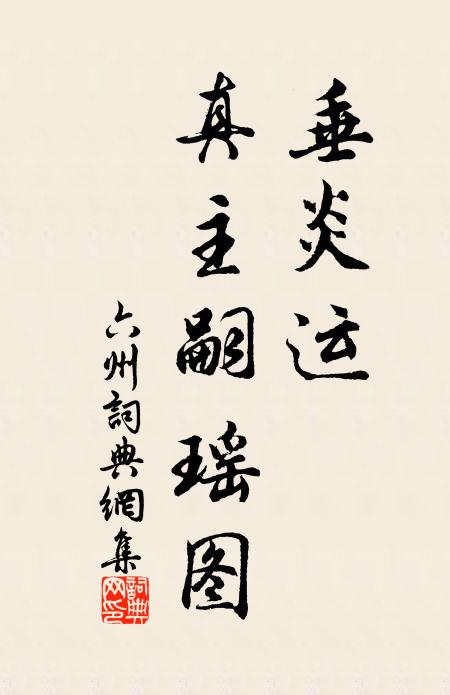 垂炎运
真主嗣瑶图
六州詞典網集
詞典网印